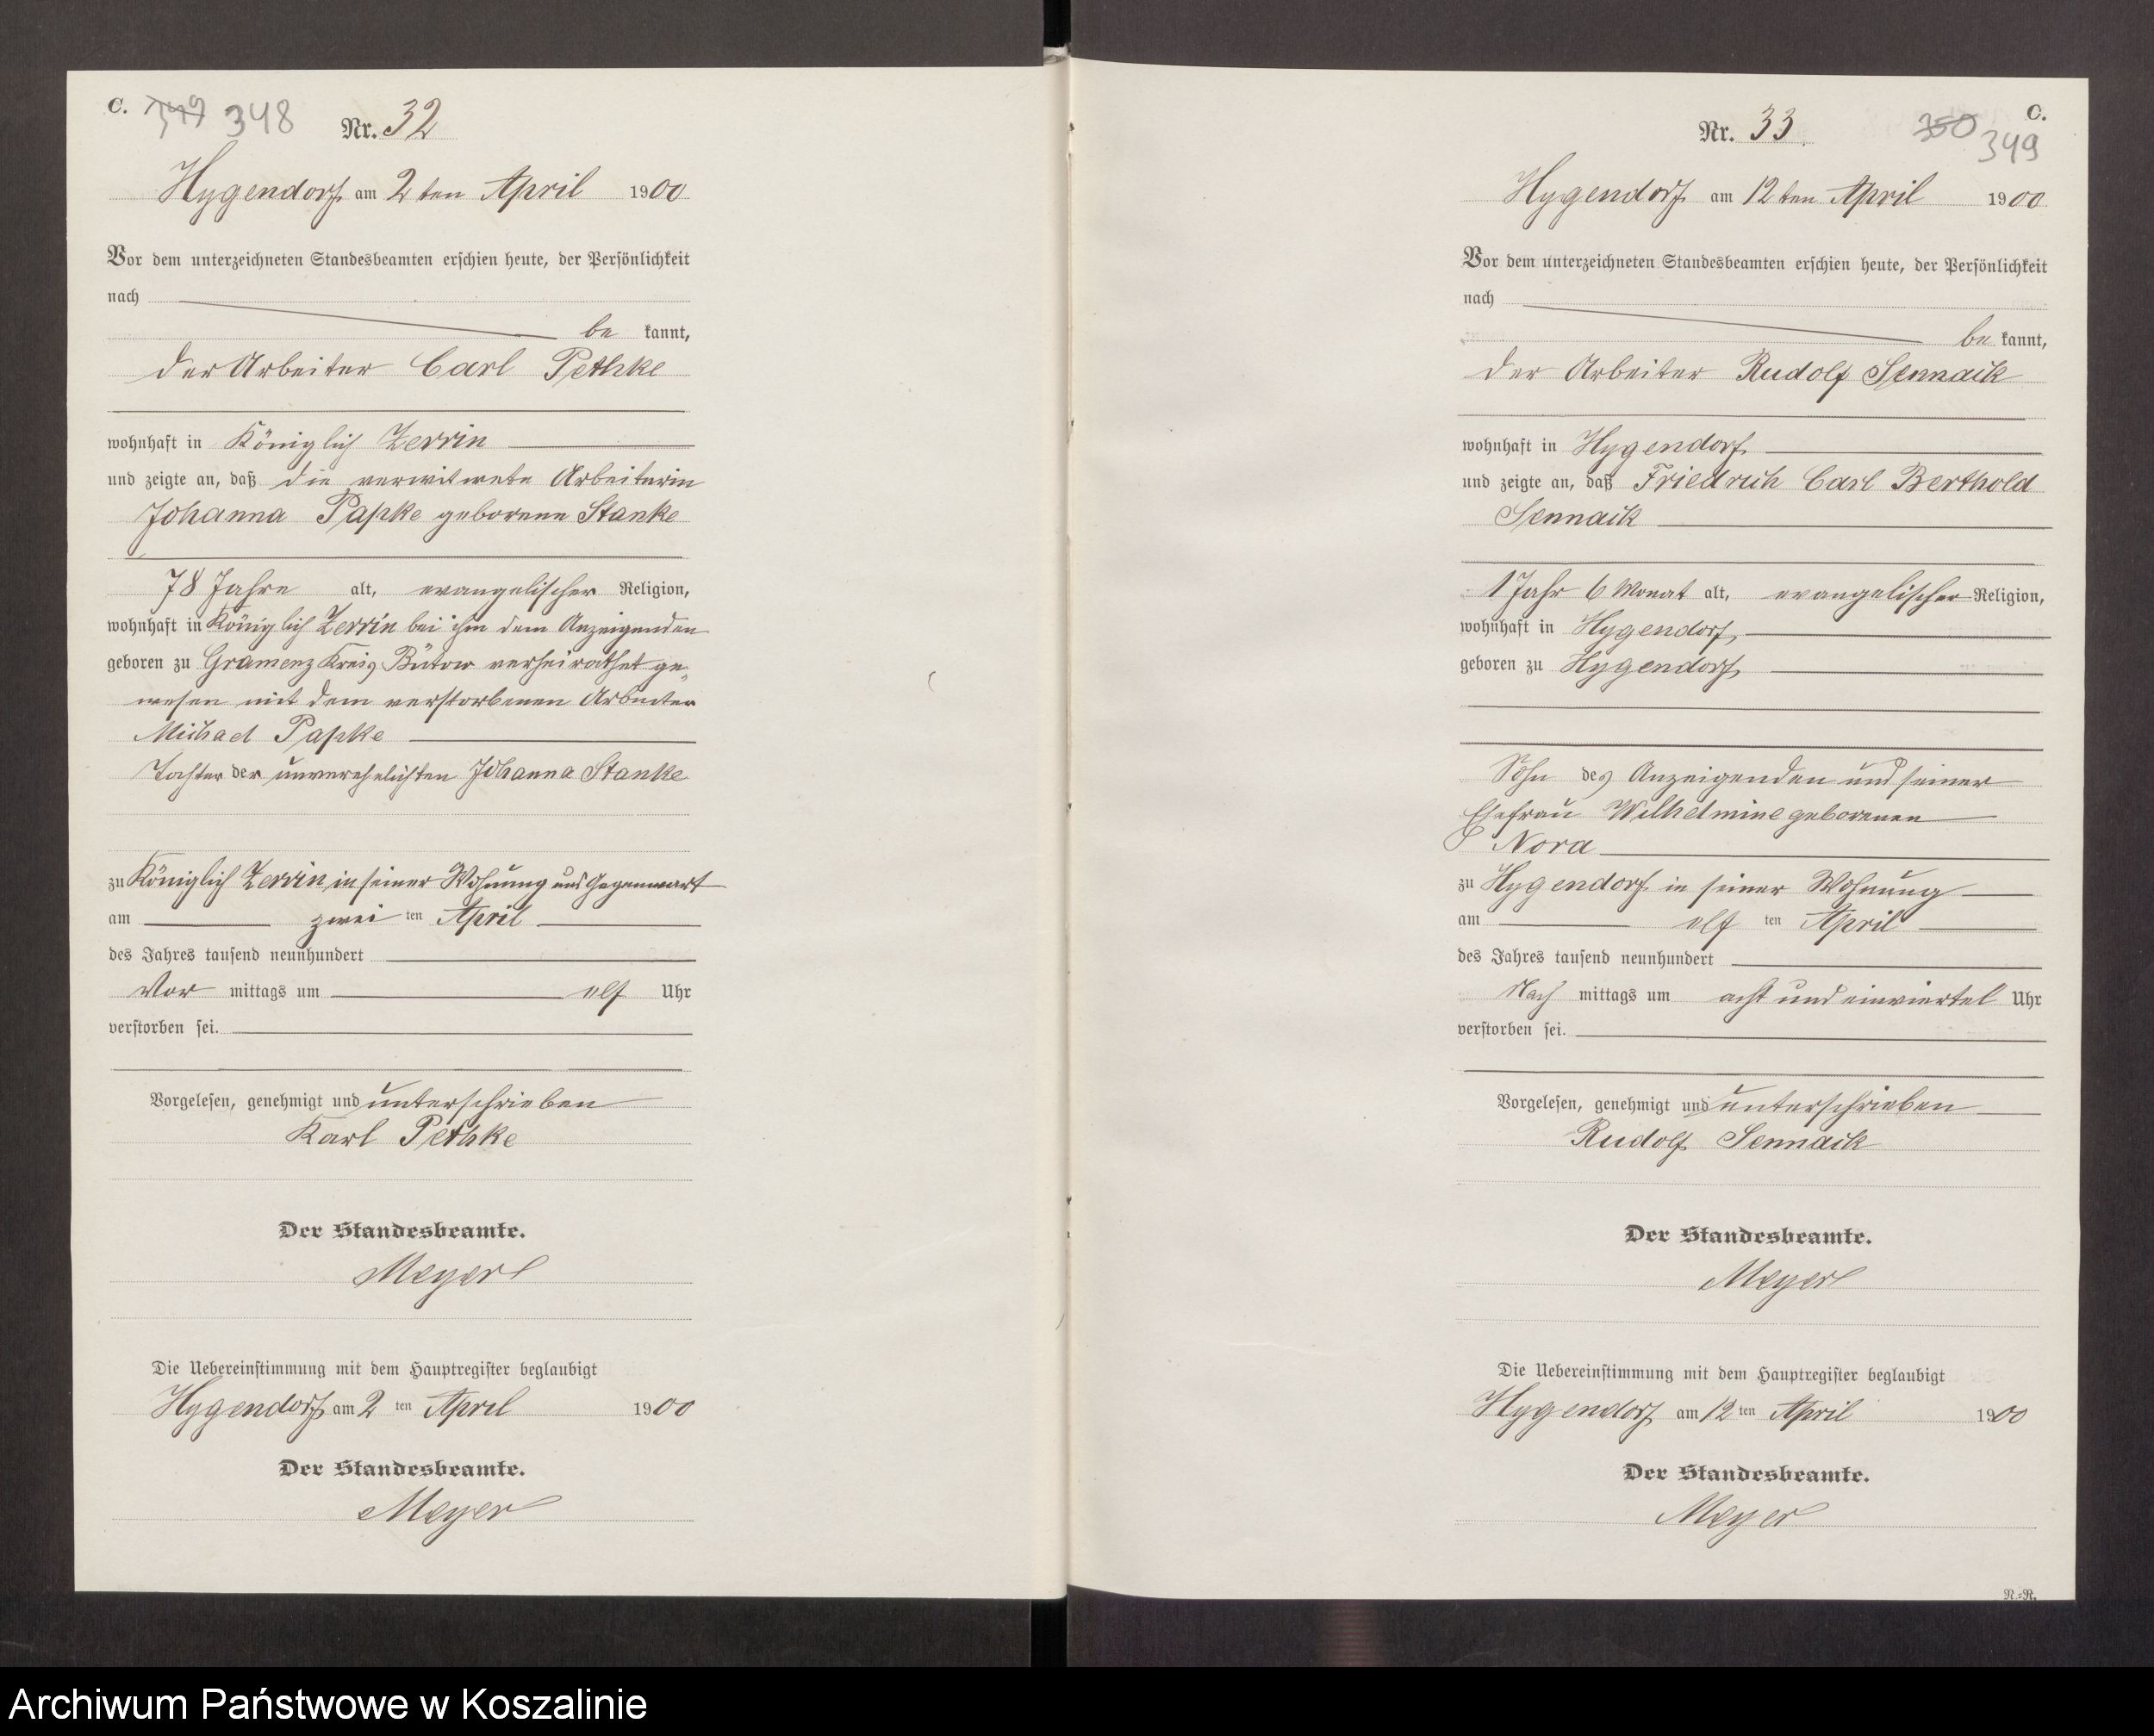 C. 349 348
Nr. 32
Hygendorf am 2 ten April 1900
Vor dem unterzeichneten Standesbeamten erschien heute, der Persönlichkeit
nach
be kannt,
der Arbeiter Carl Pethke
wohnhaft in Königlich Zerrin
und zeigte an, daß die verwitwete Arbeiterin
Johanna Papke geborene Stanke
78 Jahre alt, evangelischer Religion,
wohnhaft in Königlich Zerrin bei ihm dem Anzeigenden
geboren zu Gramenz Kreis Bütow verheirathet ge-
wesen mit dem verstorbenen Arbeiter
Michael Papke
Tochter der unverehelichten Johanna Stanke
zu Königlich Zerrin in seiner Wohnung und Gegenwart
am zwei ten April
des Jahres tausend neunhundert
Vor mittags um elf Uhr
verstorben sei.
Vorgelesen, genehmigt und unterschrieben
Karl Pethke
Der Standesbeamte.
Meyer
Die Uebereinstimmung mit dem Hauptregister beglaubigt
Hygendorf am 2 ten April 1900
Der Standesbeamte.
Meyer
C.
Nr. 33. 350 349
Hygendorf am 12 ten April 1900
Vor dem unterzeichneten Standesbeamten erschien heute, der Persönlichkeit
nach
be kannt,
der Arbeiter Rudolf Sennack
wohnhaft in Hygendorf
und zeigte an, daß Friedrich Carl Berthold
Sennack
1 Jahr 6 Monat alt, evangelischer Religion,
wohnhaft in Hygendorf,
geboren zu Hygendorf,
Sohn des Anzeigenden und seiner
Ehefrau Wilhelmine geborenen
Nora
zu Hygendorf in seiner Wohnung
am elf ten April
des Jahres tausend neunhundert
Nach mittags um acht und einviertel Uhr
verstorben sei.
Vorgelesen, genehmigt und unterschrieben
Rudolf Sennack
Der Standesbeamte.
Meyer
Die Uebereinstimmung mit dem Hauptregister beglaubigt
Hygendorf am 12 ten April 1900
Der Standesbeamte.
Meyer
N.-R.
Archiwum Państwowe w Koszalinie